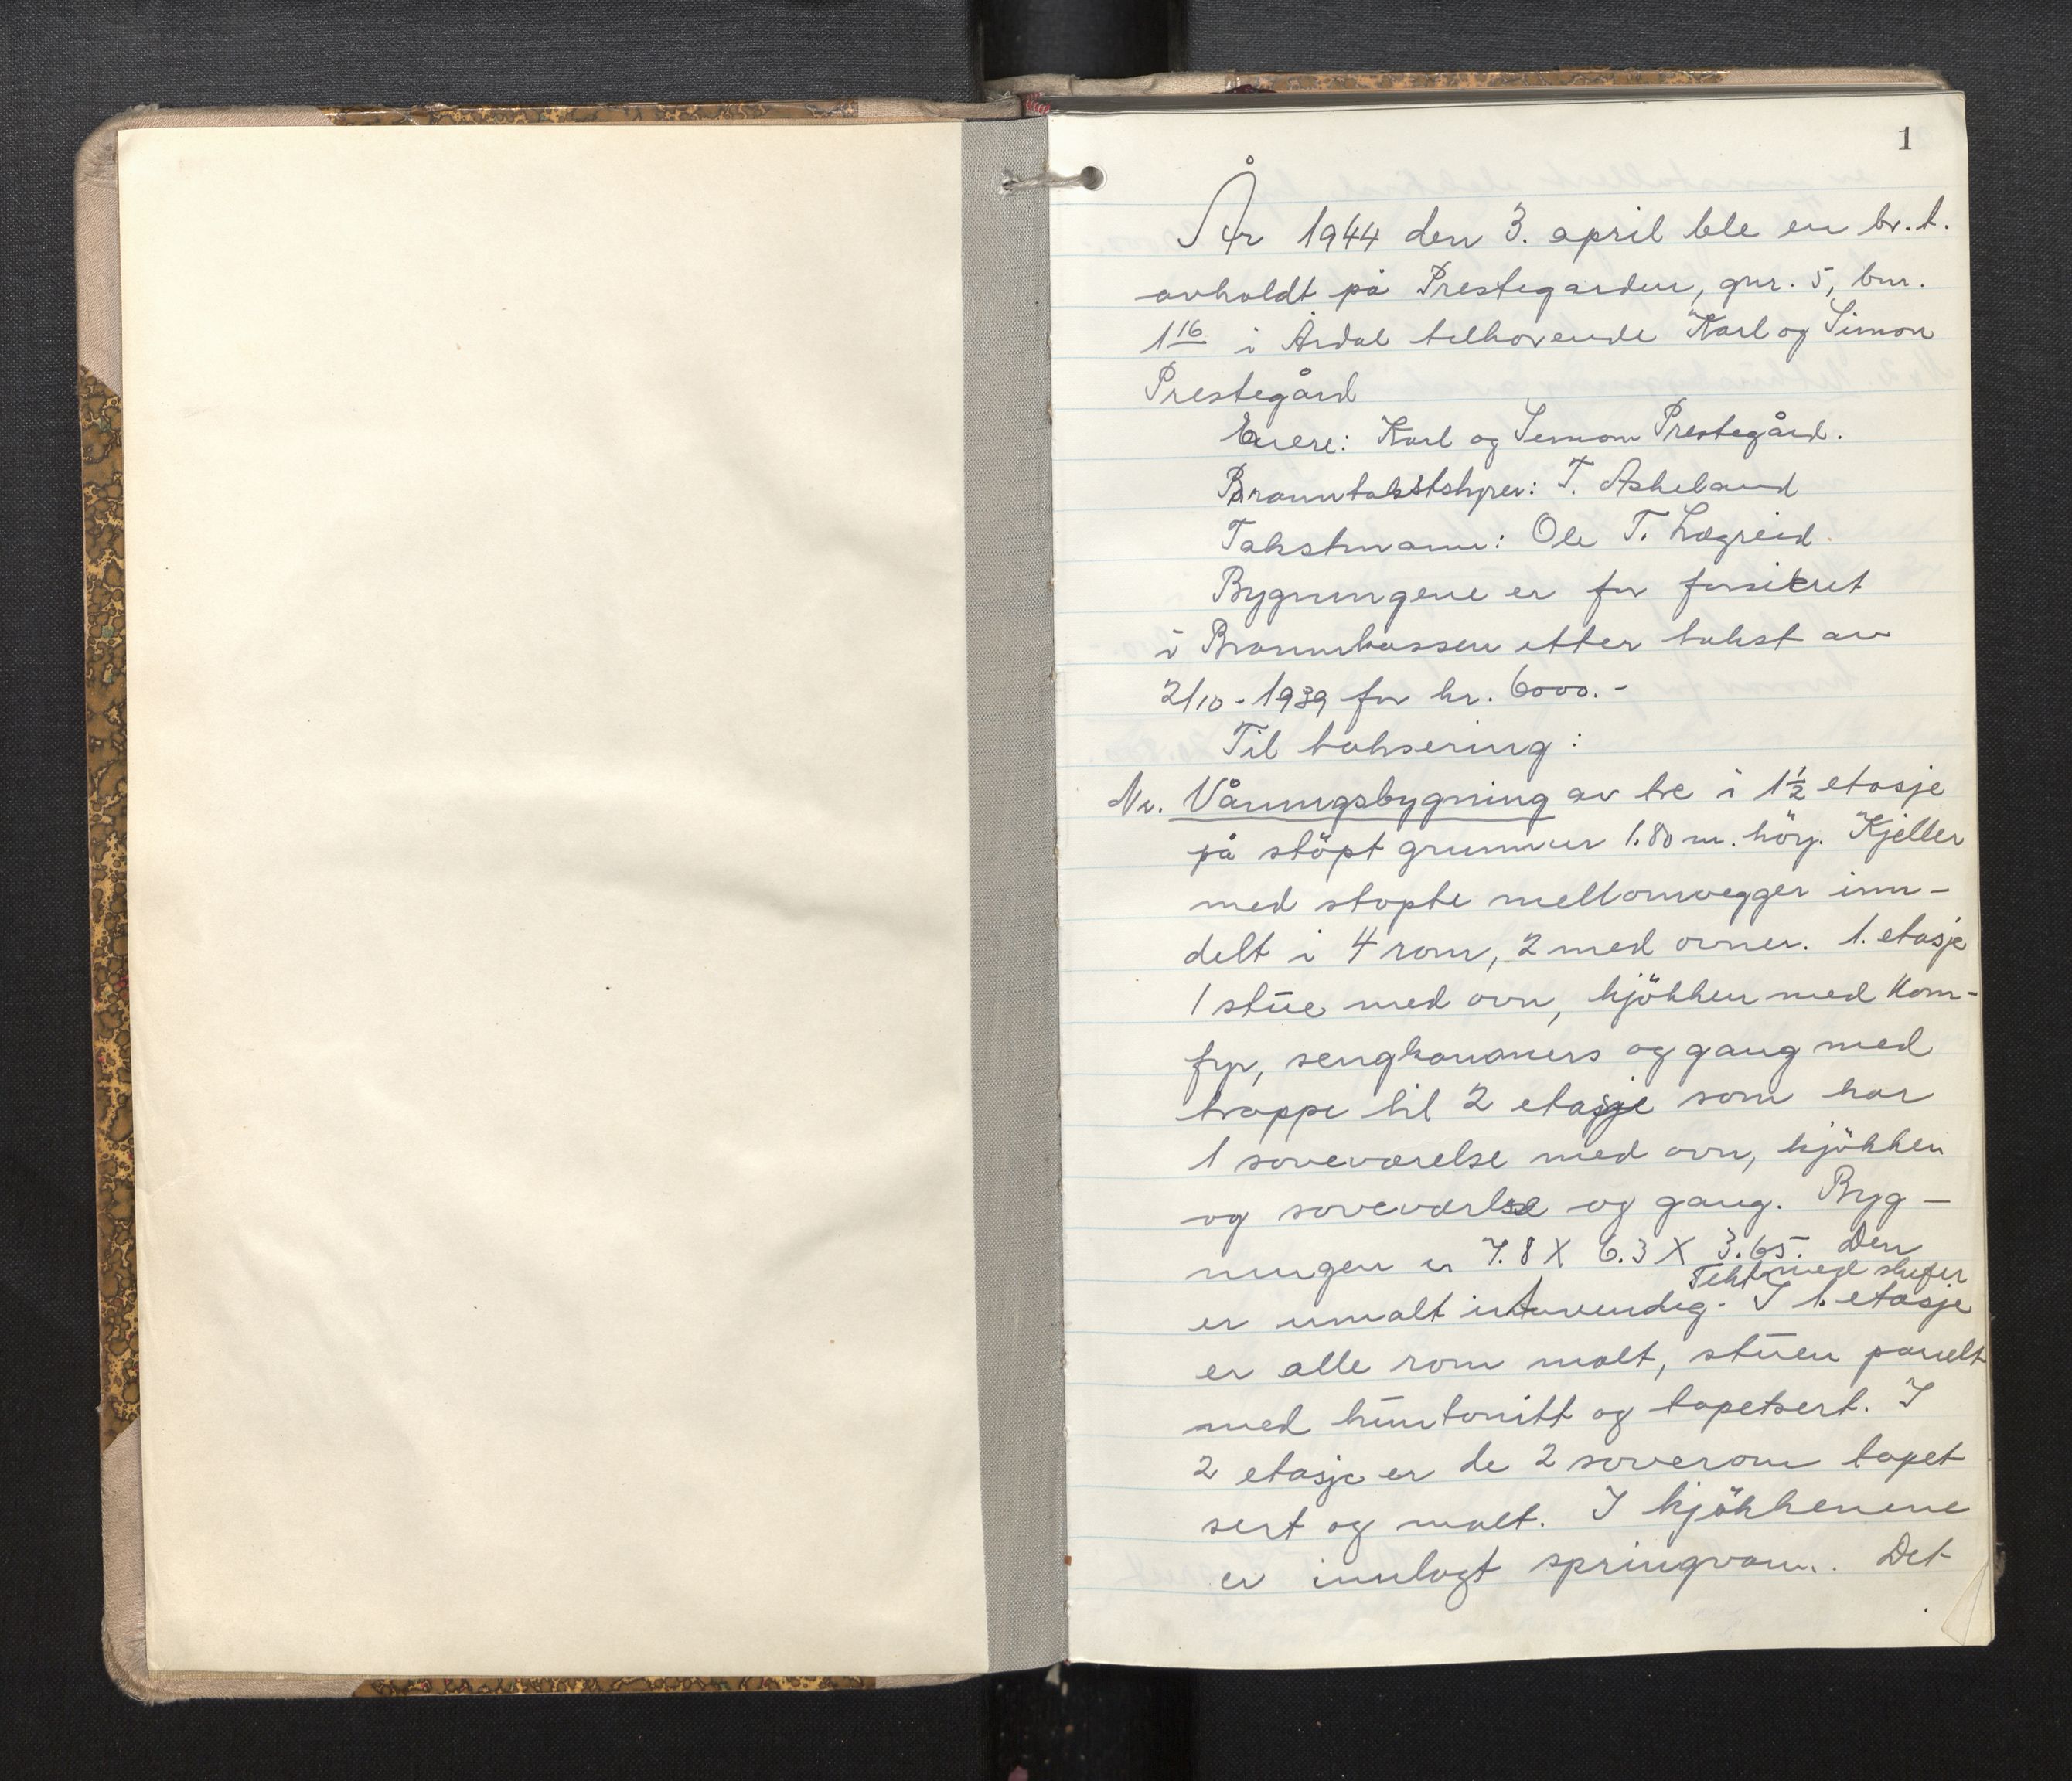 1
År 1944 den 3. april ble en br.t.
avholdt på Prestegarden, gnr. 5, bnr.
1 16 i Årdal tilhorende Karl og Simon
Prestegård
Eiere: Karl og Simon Prestegård.
Branntakstskyrer: T. Askeland
Takstmann: Ole T. Lægreid.
Bygningene er for forsikret
i Brannkassen etter takst av
2/10-1939 for kr. 6000.-
Til taksering:
Nr. Våningsbygning av tre i 1½ etasje
på stöpt grunnmur 1.80 m. höy. Kjeller
med stopte mellomvegger inn-
delt i 4 rom, 2 med ovner. 1. etasje
1 stue med ovn, kjökken med kom-
fyr, sengkammers og gang med
trappe til 2 etasje som har
1 soveværelse med ovn, kjökken
og soveværlse og gang. Byg-
ningen er 7.8 X 6.3 X 3.65. Den
Tekt med skifer
er umalt utvendig. I 1. etasje
er alle rom malt, stuen panelt
med huntonitt og tapetsert. I
2 etasje er de 2 soverom tapet
sert og malt. I kjökkenene
er innlagt springvann. Det